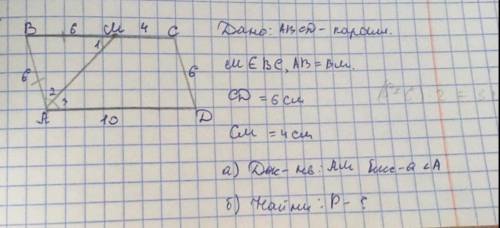 B 6 M 4 C
1
6 2 3 6
A 10 D
Дано: ABCD - паралл.
M ∈ BC, AB = BM.
CD = 6 см
CM = 4 см
а) Док-ть: AM бис-а ∠A
б) Найти: P - ?